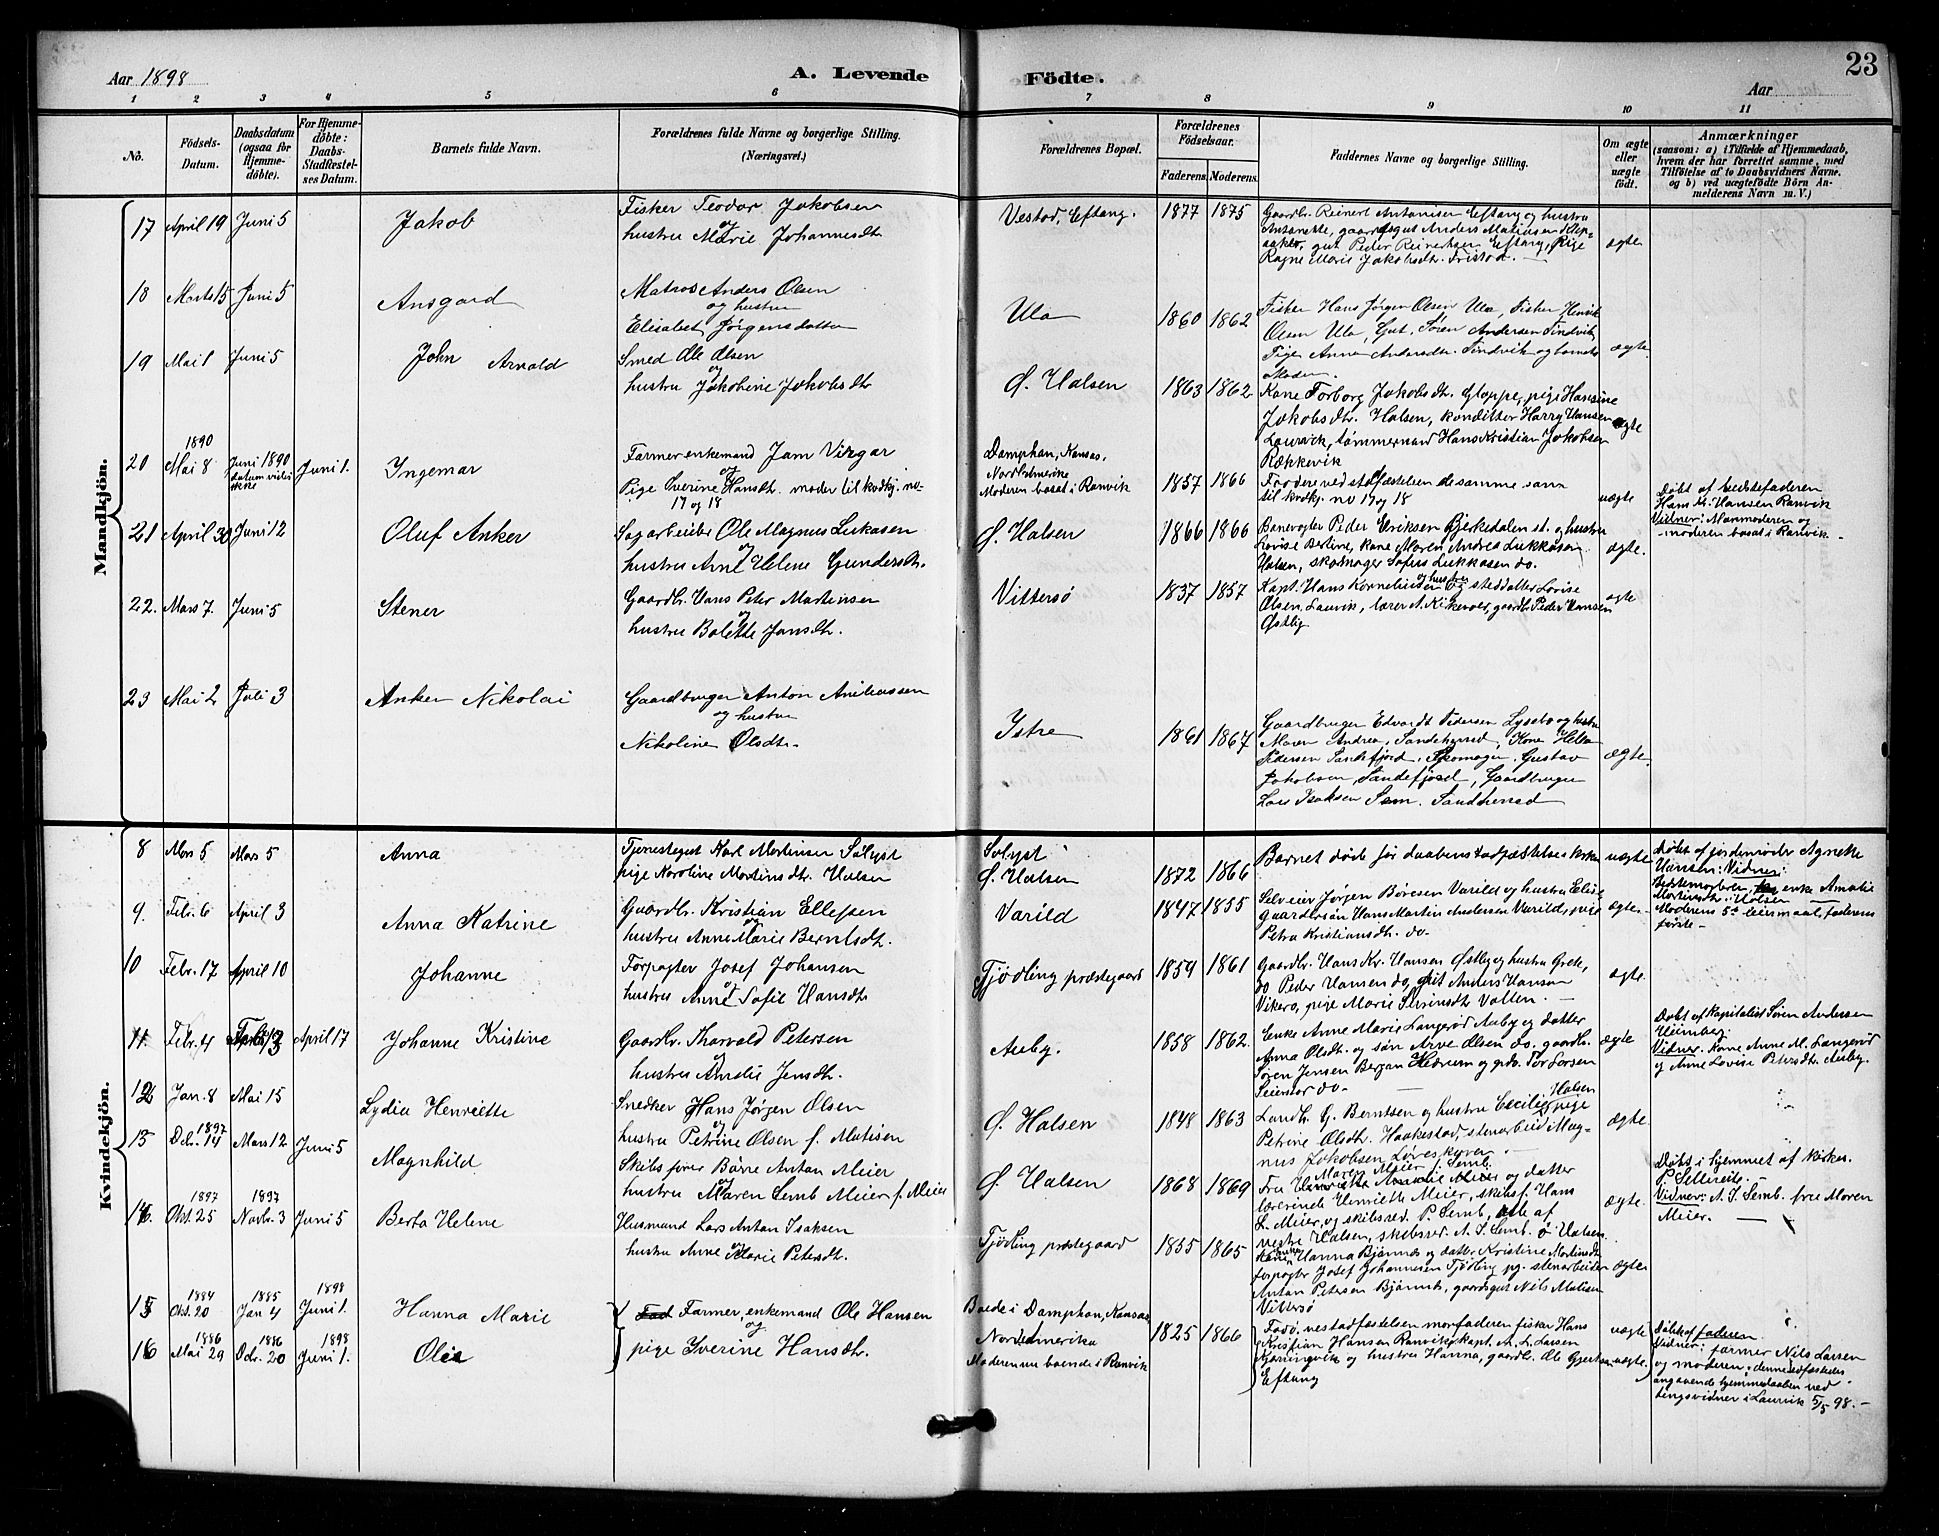 Aar 1898
A. Levende
Födte.
Aar
23
1 2 3 4 5 6 7 8 9 10 11
No.
Födsels-
Datum.
Daabsdatum
(ogsaa for
Hjemme-
döbte).
For Hjemme-
döbte:
Daabs-
Stadfæstel-
ses Datum.
Barnets fulde Navn.
Forældrenes fulde Navne og borgerlige Stilling.
(Næringsvei.)
Forældrenes Bopæl.
Forældrenes
Födselsaar.
Faderens. Moderens.
Faddernes Navne og borgerlige Stilling.
Om ægte
eller
uægte
födt.
Anmærkninger
(saasom: a) i Tilfælde af Hjemmedaab,
hvem der har forrettet samme, med
Tilföielse af to Daabsvidners Navne.
og b) ved uægtefödte Börn An-
melderens Navn m. V.)
Mandkjön.
17 April 19 Juni 5
Jakob
Fisker Teodor Jakobsen
og
hustru Marie Johannesdtr
Vestad, Eftang.
1877 1875
Gaardbr. Reinert Antonisen Eftang og hustru
Antonette, gaardsgut Anders Matiasen Klep-
aaker, gut Peder Reinertsen Eftang, Pige
Ragne Marie Jakobsdtr. Fristad. —
ægte
18 Marts 15 Juni 5
Ansgard
Matros Anders Olsen
og hustru
Elisabet Jørgensdatter
Ula
1860 1862
Fisker Hans Jørgen Olsen Ula, Fisker Henrik
Olsen Ula, Gut. Søren Andersen Tindvik,
Pige Anna Andersdtr. Tindvik og barnets
Moder.
ægte.
19 Mai 1 Juni 5
John Arnold
Smed Ole Olsen
og
hustru Jakobine Jakobsdtr
Ø. Halsen
1863 1862
Kone Torborg Jakobsdtr. Gloppe, pige Hansine
Jakobsdtr. Halsen, konditter Harry Hansen
Laurvik, tømmermand Hans Kristian Jakobsen
Rækkevik
ægte
20 1890 Mai 8
Juni 1890
datum vides
ikke
Juni 1.
Ingemar
Farmer enkemand Jam Virgar
og
Pige Iverine Hansdtr. moder til kvdkj. no-
17 og 18
Damphan, Kansas,
Nordamerika
Moderen bosat i Ranvik
1857 1866
Faddere ved stadfæstelsen de samme som
til kvdkj. no 17 og 18
uægte
Døbt af bedstefaderen
Hans Kr. Hansen Ranvik
Vidner: Mormoderen og
moderen bosat i Ranvik -
21 April 30 Juni 12
Oluf Anker
Sagarbeider Ole Magnus Lukasen
og
hustru Anne Helene Gundersdtr.
Ø. Halsen
1866 1866
Banevogter Peder Eriksen Bjerkedalen st. og hustru
Lovise Bertine, kone Maren Andrea Lukkasen
Halsen, skomager Sofus Lukkasen do.
ægte.
22. Mars 7. Juni 5
Stener
Gaardbr. Hans Peter Martinsen
og
hustru Bolette Jansdtr.
Vittersö
1837 1857
Kapt. Hans Korneliussen og hustru og steddatter Lovise
Olsen, Laurvik, lærer A. Kirkevold, gaardbr. Peder Hansen
Østby
ægte
23 Mai 2 Juli 3
Anker Nikolai
Gaardbruger Anton
og hustru
Nikoline Olsdtr.
Istre
1861 1867
Gaardbruger Edvardt Pedersen Lysebo og hustru
Maren Andrea, Sandeherred, Kone Helle
Pedersen Sandefjord, Skomager, Gustav
Jakobsen, Sandefjord, Gaardbruger
Lars Isaksen Sem. Sandeherred
ægte.
Kvindekjön.
8 Mars 5 Mars 5
Anna
Tjenestegut Karl Martinsen Solyst
pige Karoline Martinsdtr. Halsen
Solyst
Ø. Halsen
1872 1866
Barnet døde før daabens stadfæstelse i kirken
uægte
Døbt af jordemoder Agnette
Hansen: Vidner:
Bedstemoderen, enke Amalie
Martinsdtr. Halsen —
Moderens 5te leiermaal, faderens
første -
9. Feb. 6 April 3
Anna Katrine
Gaardbr. Kristian Ellefsen
og
hustru Anne Marie Berntsdtr.
Varild
1847 1855
Selveier Jørgen Børesen Varild og hustru Elise
gaardersøn Hans Martin Andersen Varild, pige
Petra Kristiansdtr. do-
ægte-
10 Febr. 17 April 10
Johanne
Forpagter Josef Johansen
og
hustru Anne Sofie Hansdtr
Tjödling præstegaard
1859 1861
Gaardbr. Hans Kr. Hansen Østby og hustru Grete,
do Peder Hansen do, gut Anders Hansen
Vikerø, pige Marie Sørensdtr Valten. —
ægte
11. Febr. 4 Febr. 13 April 17
Johanne Kristine
Gaardbr. Thorvald Petersen
hustru Amalie Jensdtr.
Auby.
1858 1862.
Enke Anne Marie Langerød Auby og datter
Anna Olsdtr. og søn Arve Olsen do. gaardbr.
Søren Jensen Bergan Hedrum og grdbr. Tor Larsen
Seierstad do-
ægte
Døbt af kapitalist Søren Andersen
Heimberg.
Vidner. Kone Anne M. Langerød
og Anne Lovise Petersdtr. Auby.
12 Jan. 8 Mai 15
Lydia Henriette
Snedker Hans Jørgen Olsen
og
hustru Petrine Olsen f. Matisen
Ø. Halsen
1848 1863
Landh. G. Berntsen og hustru Cecilie Halsen, pige
Petrine Olsdtr. Haakestad, stenarbeid. Mag-
nus Jakobsen Løveskogen -
ægte
13 1897 Dcbr. 14 Mars 12 Juni 5
Magnhild
Skibsfører Børre Antan Meier
og
hustru Maren Semb Meier f. Meier
Ø. Halsen
1868 1869
Fru Maren Meier f. Semb. og datter
lærerinde Henriette Meier, skibsf. Hans
L. Meier, og skibsred. P. Semb, alle af
vestre Halsen, skibsred. A. J. Semb. ø. Halsen.
ægte.
Døbt i hjemmet af kirkes.
P. Selliseite. -
Vidner: A. J. Semb. frue Maren
Meier. —
14. 1897 Okt. 25 1897 Novbr. 3 Juni 5
Berta Helene
Husmand Lars Antan Isaksen
og
hustru Anne Marie Petersdtr.
Tjødling præstegaard
1855 1865
Hanna Bjønnes og datter Kristine Martinsdtr
forpagter Josef Johannesen Tjödling pg. stenarbeider
Antan Petersen Bjønnes, gaardsgut Nils Matisen
Vittersø
ægte
15 1884 Okt. 20 1885 Jan 4 1898 Juni 1.
Hanna Marie
Farmer, enkemand Ole Hansen
og
pige Iverine Hansdtr.
16 1886 Mai 29 1886 Dcbr. 20 1898 Juni 1.
Olea
Boede i Damphan, Kansas
Nordamerika
Moderen nu boende i Ranvik
1825 1866
Fadd. ved stadfæstelsen morfaderen fisker Hans
Kristian Hansen Ranvik, kapt. A. L. Larsen
og hustru Hanna, gaardbr. Ole Gjertsen
Eftang
uægte
uægte.
Døbt af faderen.
Vidner: farmer Nils Larsen
og moderen; denne edfæstede
angaaende hjemmedaaben ved
tingsvidner i Laurvik 5/5 98. -